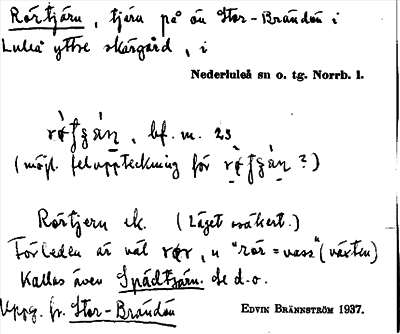 Rörtjärn, tjärn på ön Stor-Brändön i
Luleå yttre skärgård, i
Nederluleå sn o. tg. Norrb. l.
bf. m. 23
(möjl. feluppteckning för ?)
Rörtjern ek. (Läget osäkert.)
Förleden är väl rør, n "rör = vass" (växten)
Kallas även Spädtjärn. Se d.o.
Uppg. fr. Stor-Brändön
EDVIN BRÄNNSTRÖM 1937.